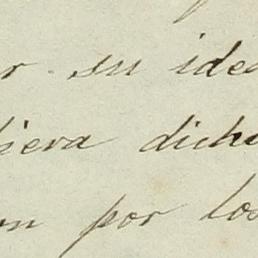 r su idea
iera dich
on por los